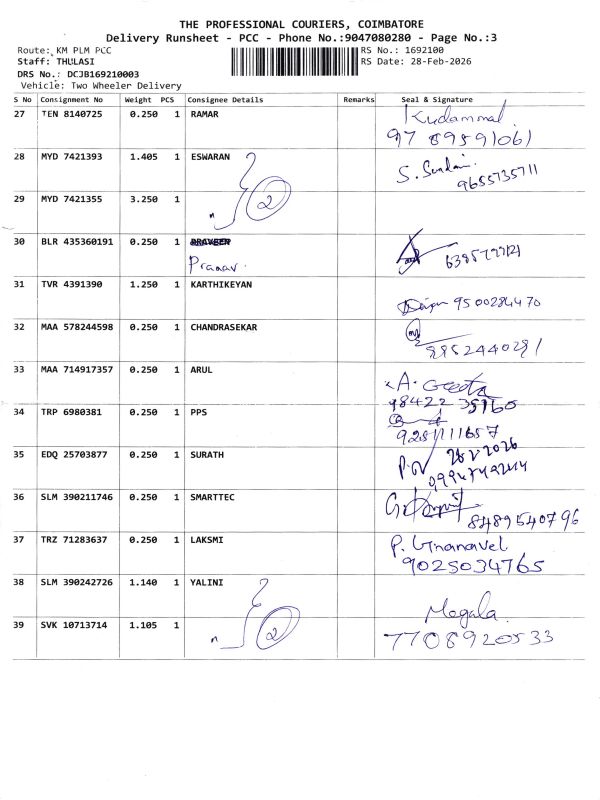 THE PROFESSIONAL COURIERS, COIMBATORE
Delivery Runsheet - PCC - Phone No.:9047080280 - Page No.:3
Route: KM PLM PCC RS No.: 1692100
Staff: THULASI RS Date: 28-Feb-2026
DRS No.: DCJB169210003
Vehicle: Two Wheeler Delivery
S No Consignment No Weight PCS Consignee Details Remarks Seal & Signature
27 TEN 8140725 0.250 1 RAMAR
28 MYD 7421393 1.405 1 ESWARAN
9655735711
29 MYD 7421355 3.250 1 2
30 BLR 435360191 0.250 1 PRAVEEN
Pranav.
31 TVR 4391390 1.250 1 KARTHIKEYAN
9500284470
32 MAA 578244598 0.250 1 CHANDRASEKAR
9952440291
33 MAA 714917357 0.250 1 ARUL
A. Geeta
98422 35160
34 TRP 6980381 0.250 1 PPS
9281111657
35 EDQ 25703877 0.250 1 SURATH
28/2/2026
36 SLM 390211746 0.250 1 SMARTTEC
8489540796
37 TRZ 71283637 0.250 1 LAKSMI P. Gnanavel
9025034765
38 SLM 390242726 1.140 1 YALINI
Megala
39 SVK 10713714 1.105 1 2 7708920533